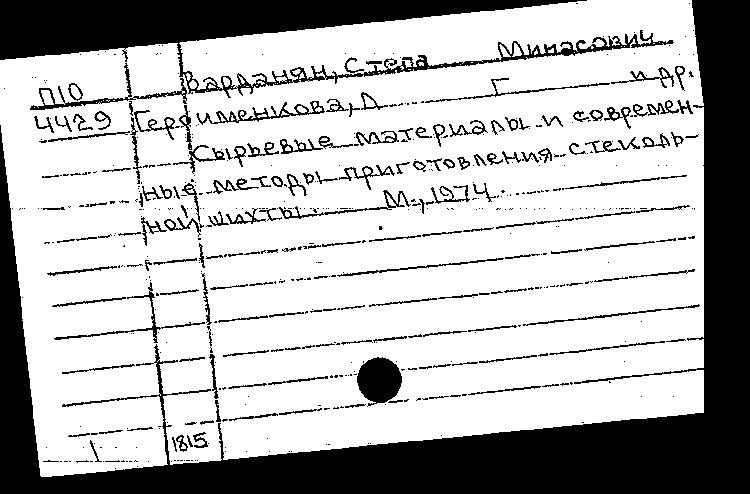 П10 Варданян, Степа Минасович
4429 Герсименкова, Л Г и др.
Сырьевые материалы и современ-
ные методы приготовления стеколь-
ной шихты. М., 1974.
1 1815